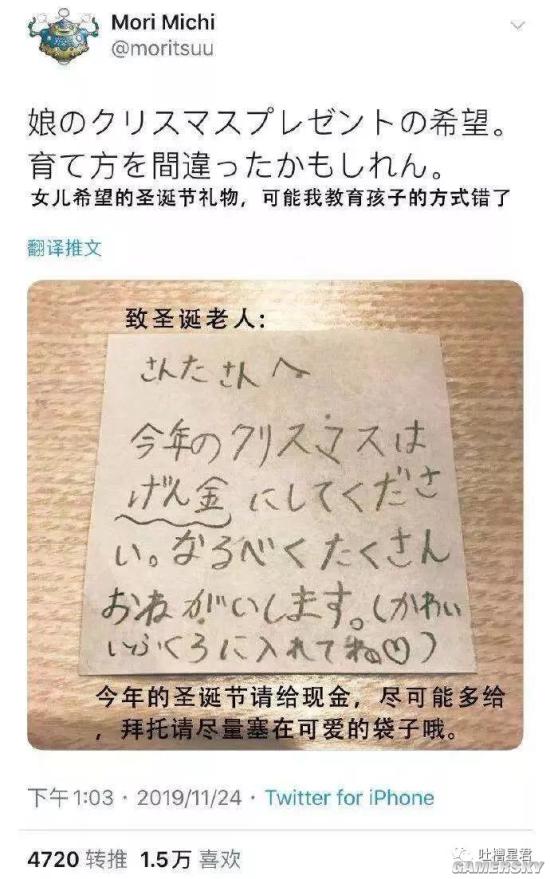 Mori Michi
@moritsuu
娘のクリスマスプレゼントの希望。
育て方を間違ったかもしれん。
女儿希望的圣诞节礼物，可能我教育孩子的方式错了
翻译推文
致圣诞老人：
さんたさんへ
今年のクリスマスは
げん金にしてくださ
い。なるべくたくさん
おねがいします。(かわい
いふくろに入れてね♡)
今年的圣诞节请给现金，尽可能多给
，拜托请尽量塞在可爱的袋子哦。
下午1:03 · 2019/11/24 · Twitter for iPhone
4720 转推 1.5万 喜欢
吐槽星君
GAMERSKY